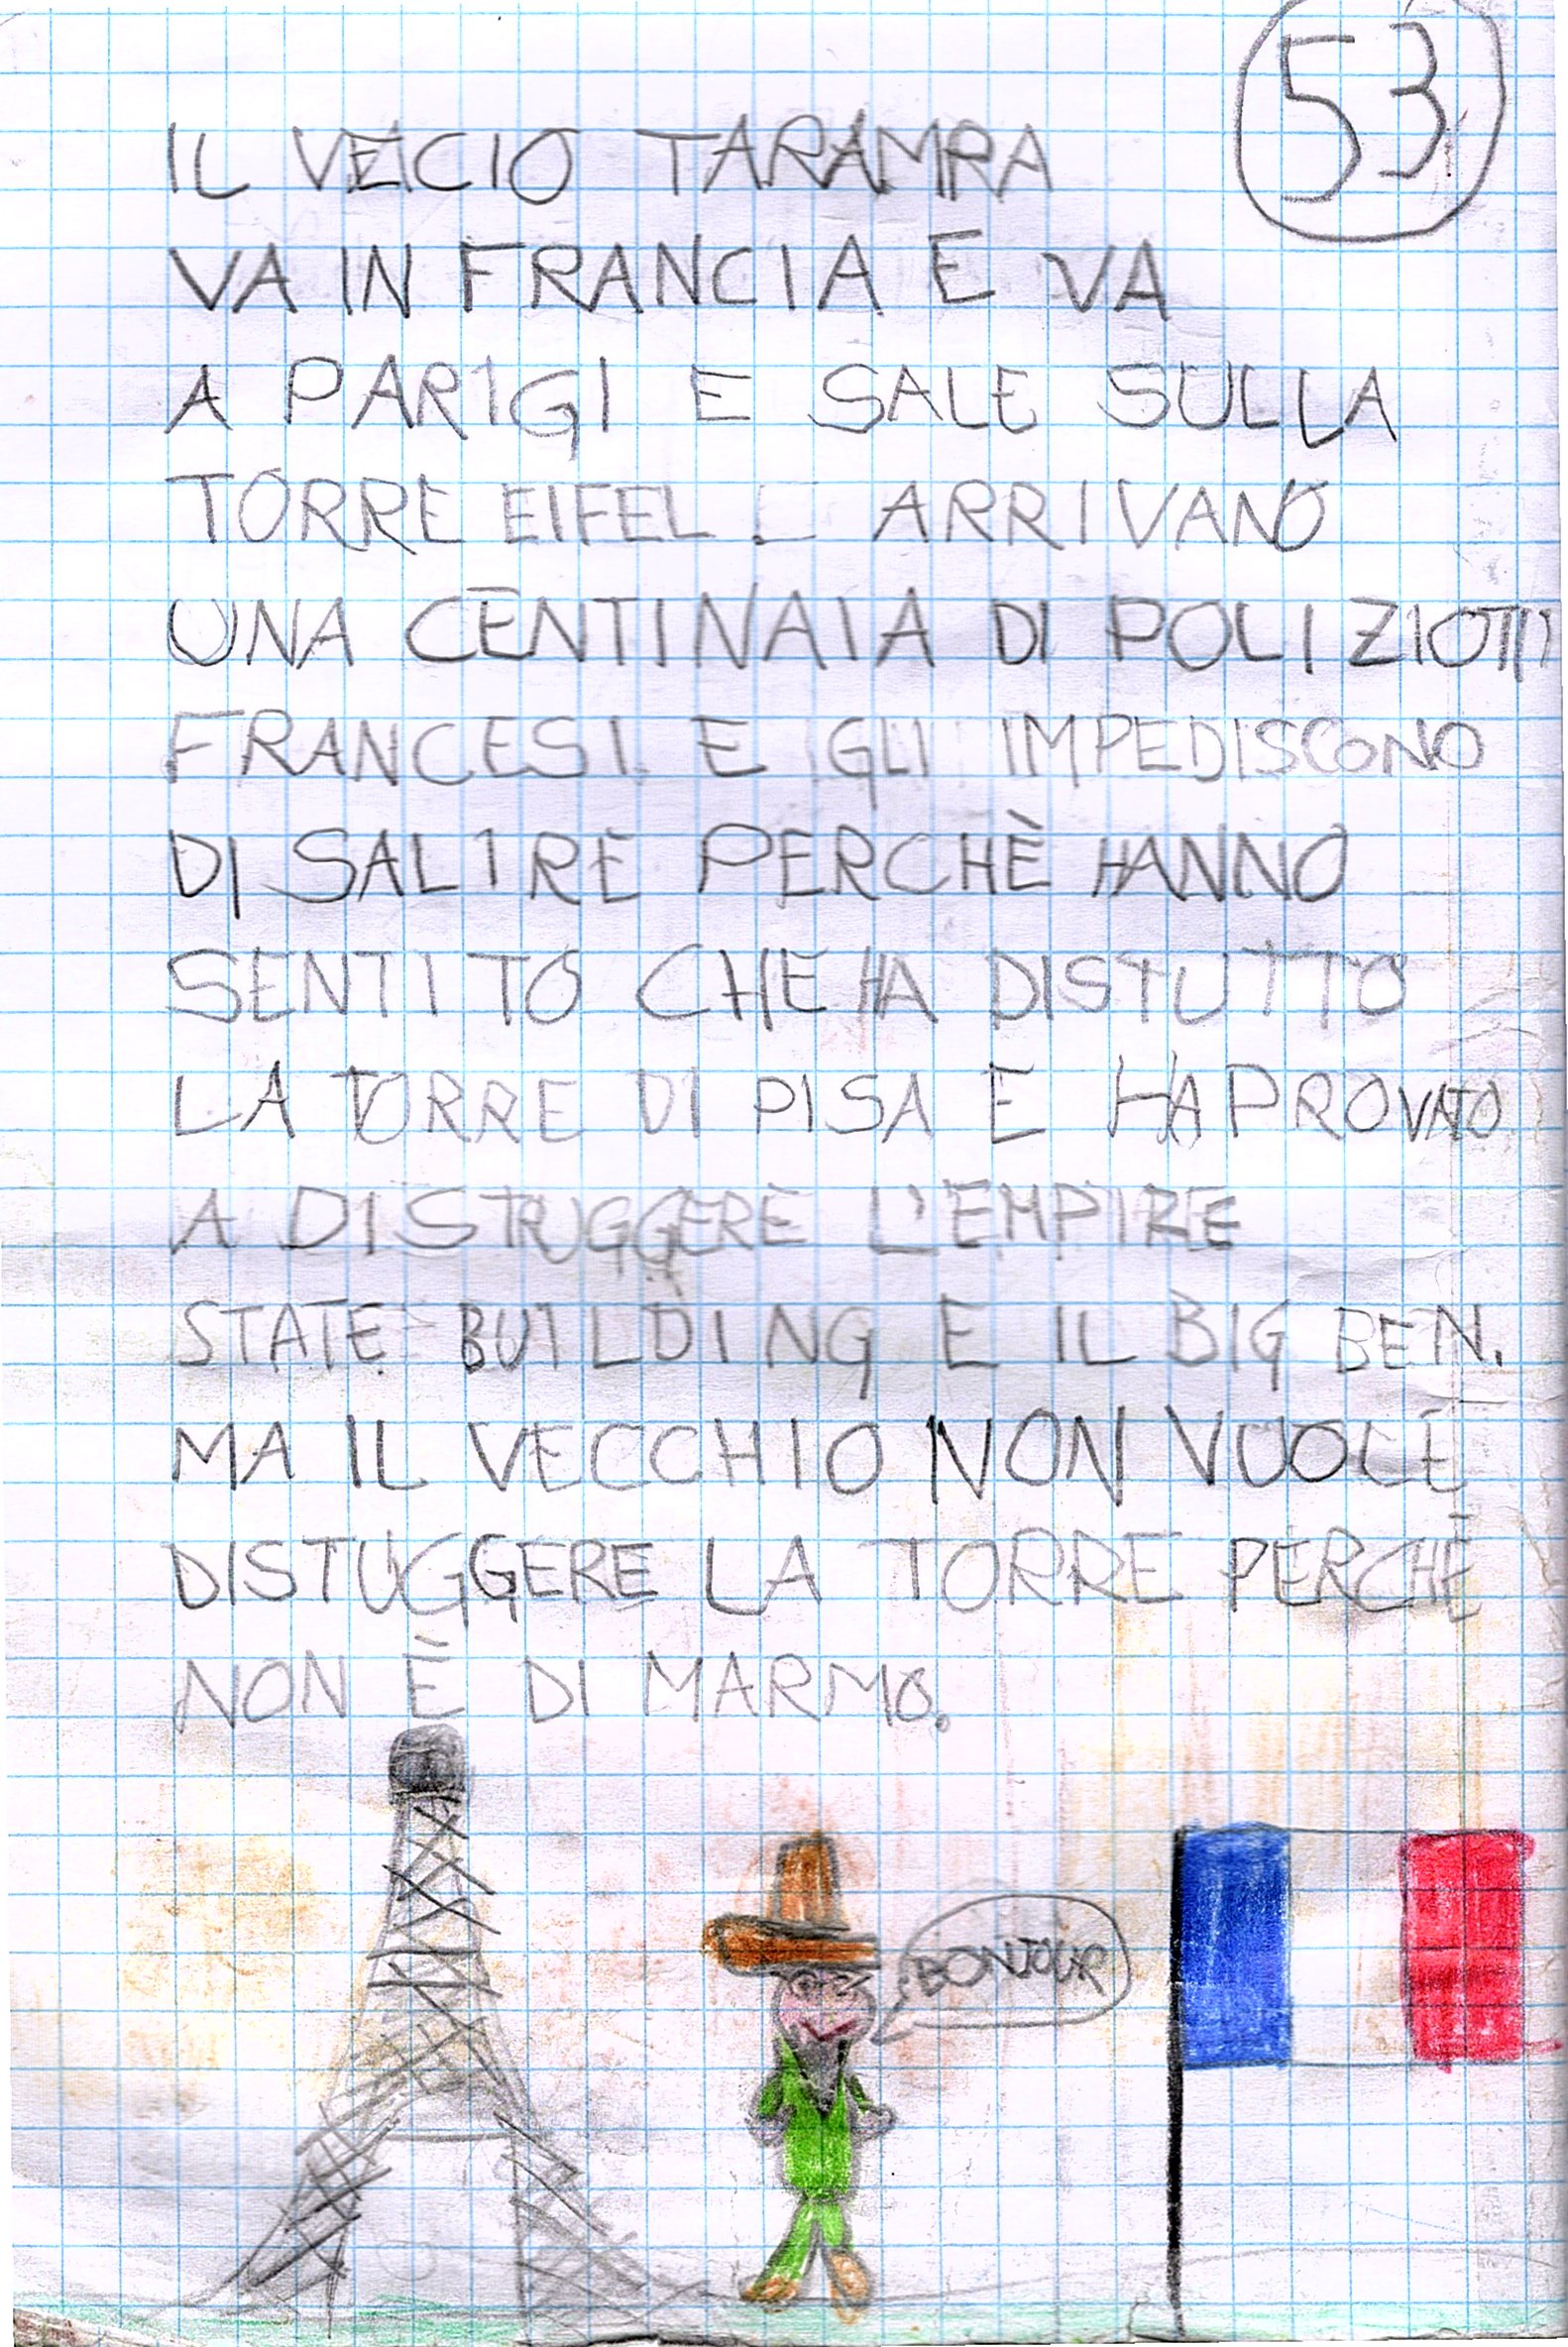 53
IL VECIO TARAMPA
VA IN FRANCIA E VA
A PARIGI E SALE SULLA
TORRE EIFEL E ARRIVANO
UNA CENTINAIA DI POLIZIOTTI
FRANCESI E GLI IMPEDISCONO
DI SALIRE PERCHÈ HANNO
SENTITO CHE HA DISTUTTO
LA TORRE DI PISA E HA PROVATO
A DISTRUGGERE L'EMPIRE
STATE BUILDING E IL BIG BEN.
MA IL VECCHIO NON VUOLE
DISTUGGERE LA TORRE PERCHÈ
NON È DI MARMO.
BONJOUR